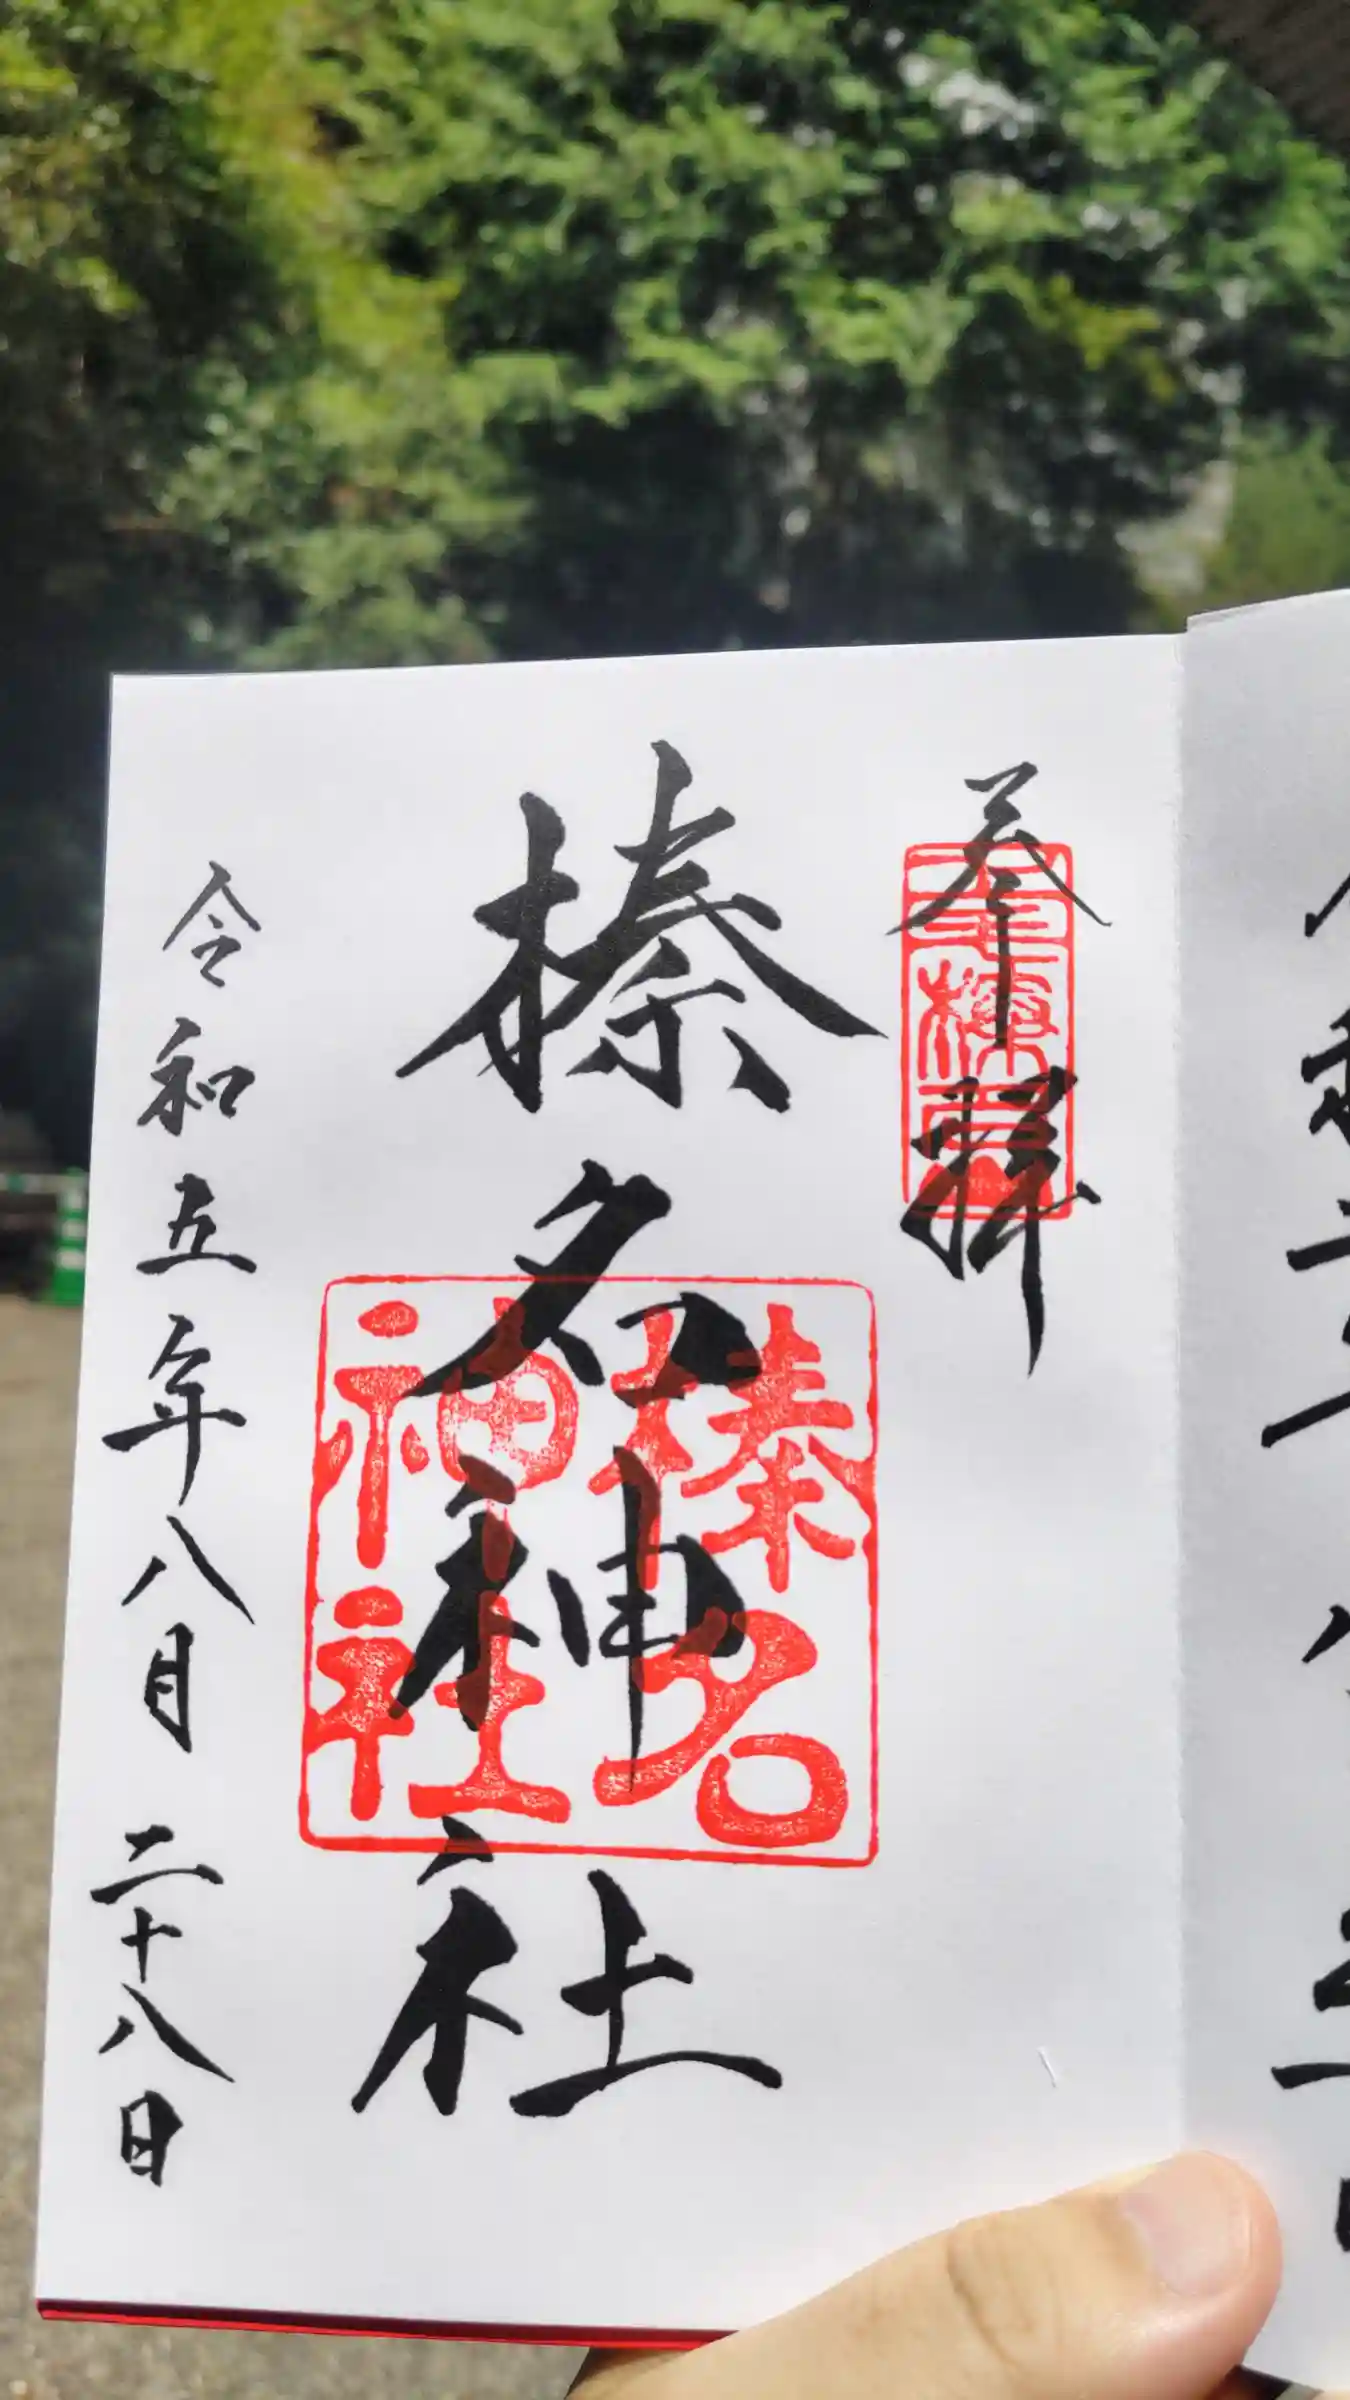 奉拝
榛名神社
榛名神社
令和五年八月二十八日